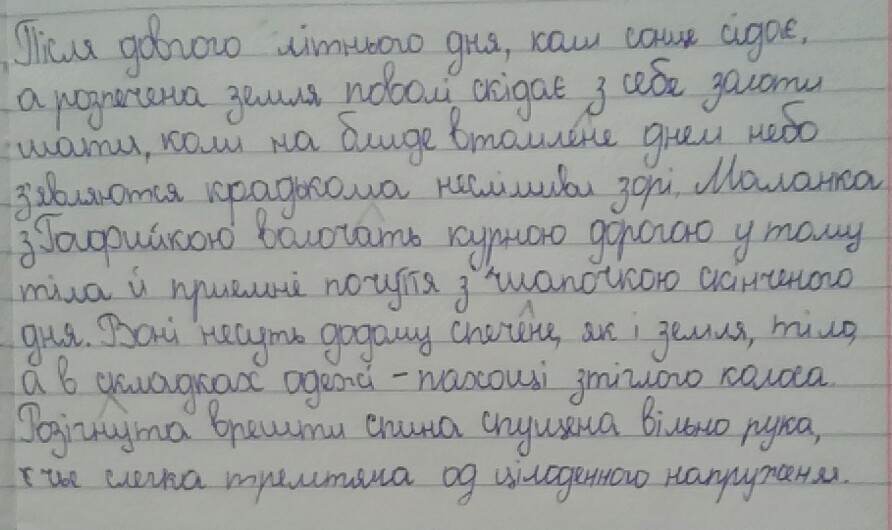 Після довгого літнього дня, коли сонце сідає,
а розпечена земля поволі скідає з себе золоти
шати, коли на блиде втомлене днем небо
з'являются крадькома несміливи зорі, Маланка
з Гафрийкою волочать курною дорогою у тому
тіла й приемне почуття з шапочкою скінченого
дня. Воні несуть додому спечене, як і земля, тіло,
а в складках одежі - пахощі зтіглого колоса.
Розігнута врешти спина спущена вільно рука,
слегка тремтяча од цілоденного напруженя.